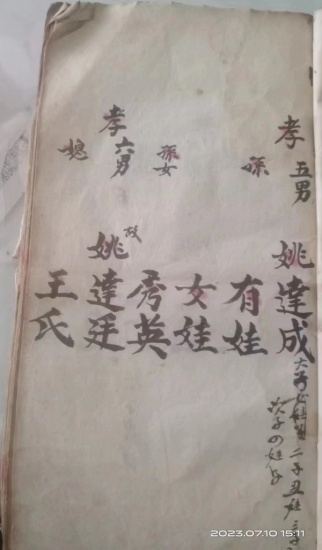 孝五男 姚達成
二子丑娃
孫 有娃
女娃
孫女 秀英
孝六男 故 姚達廷
媳 王氏
2023.07.10 15:11